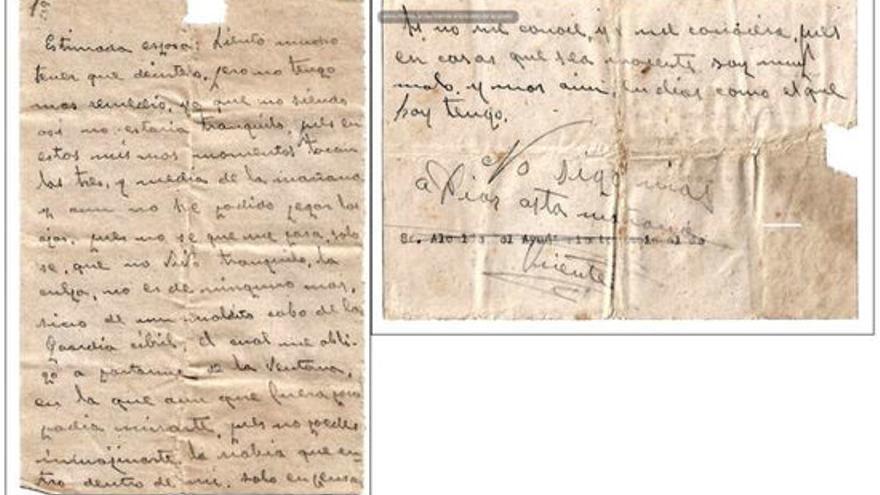 Estimada esposa: Siento mucho
tener que decirtelo, pero no tengo
mas remedio, ya que no siendo
asi no estaria tranquilo, pues en
estos mismos momentos tocan
las tres, y media de la mañana
y aun no he podido pegar los
ojos, pues no se que me pasa, solo
se, que no vivo tranquilo, la
culpa, no es de ninguno mas,
sino de un maldito cabo de la
Guardia cibil, el cual me obli-
gó a partarme de la ventana,
en la que aun que fuera poco
podia mirarte, pues no puedes
inmajinarte la rabia que en-
tro dentro de mi, solo en pensa
si no me conoce, ya me conocera, pues
en cosas que sea inocente soy muy
malo, y mas aun, en dias como el que
hoy tengo.
No sigo mas
a Dios asta mañana
Sr. Alcalde del
Vicente